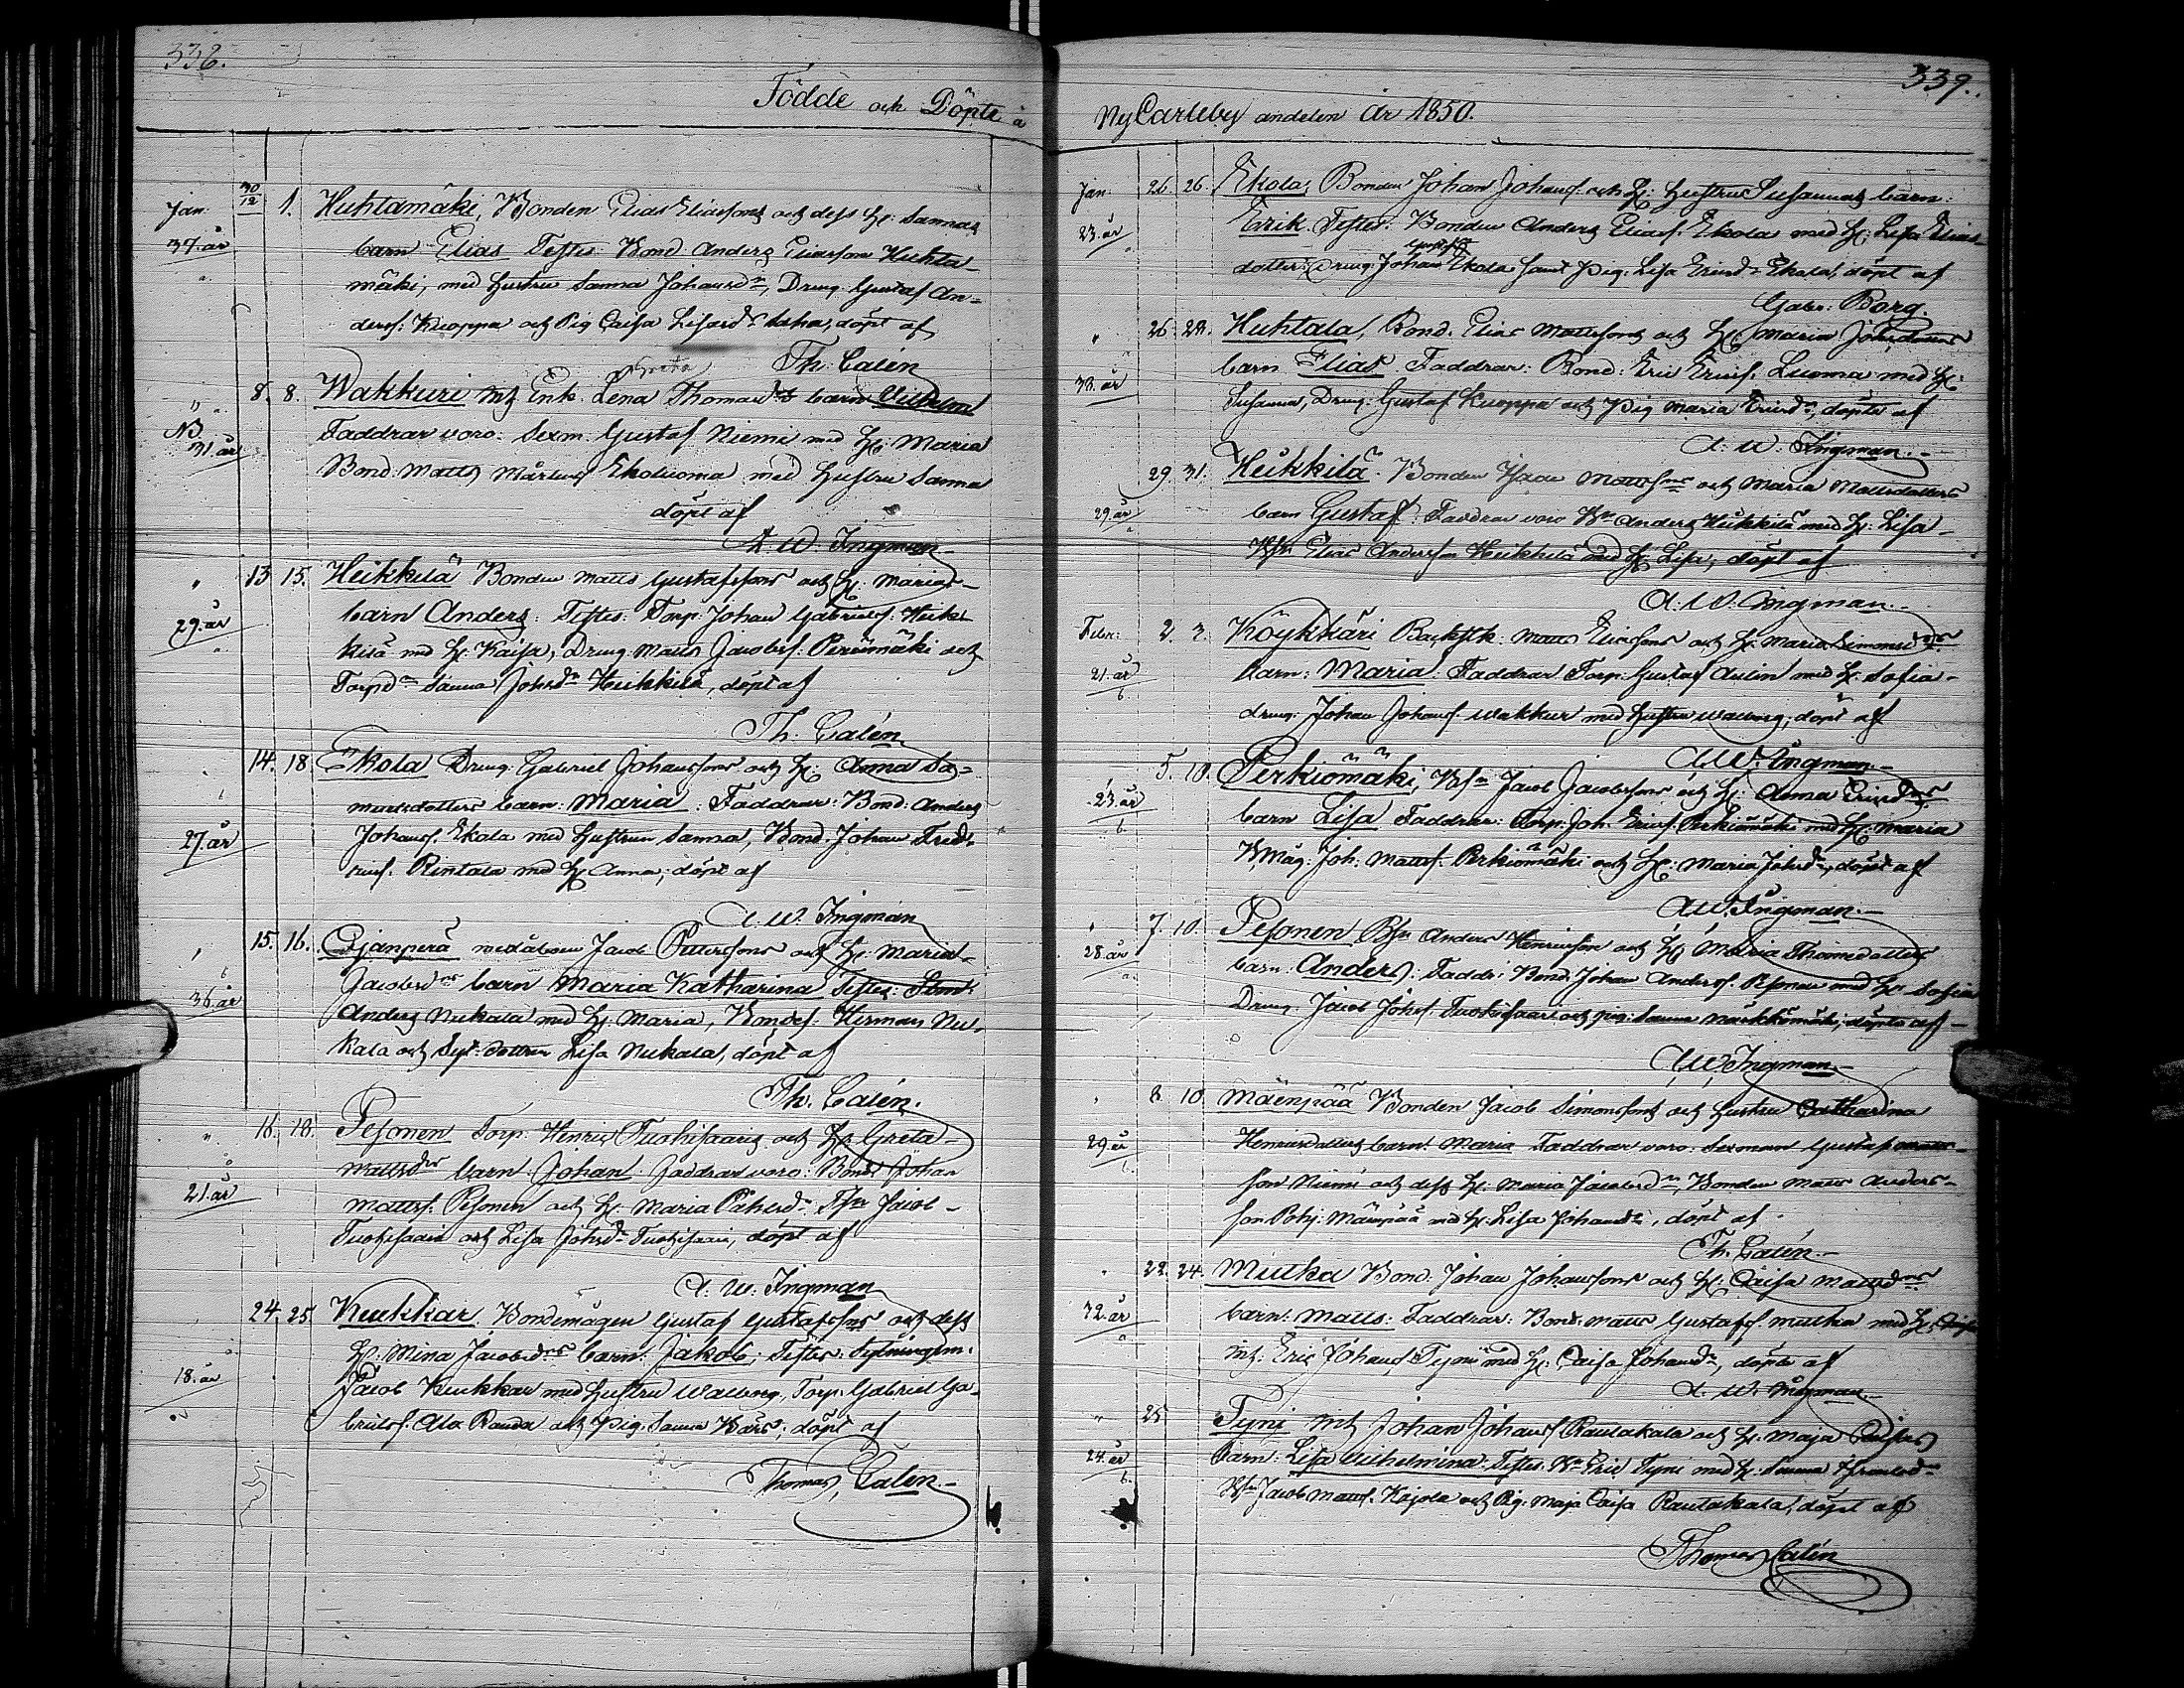 338.
Födde och Döpte å
Jan: 30/12 1. Huhtamäki, Bonden Elias Eliassons och dess H: Sannas
37. år barn Elias Testes: Bond Anders Eliasson Huhta-
mäki, med Hustru Sanna Johansdr, Dräng Gustaf An-
derss: Kuoppa och Pig Caisa döpt af
Th: Calén
8. 8. Wakkuri Enk. Lena Greta Thomasdrs barn Vilhelm
NB 31. år Faddrar voro: Sexm. Gustaf Niemi med H: Maria
Bond: Matts Mårtens Ekoluoma med Hustru Sanna
döpt af
A. W. Ingman
13 15. Heikkilä Bonden Matts Gustafssons och H: Marias
29. år barn Anders: Testes: Torp. Johan Gabrielss: Heik-
kilä med H: Kaisa, Dräng Matts Jacobss: Perämäki och
Torpdr Sanna Johsdr Heikkilä, döpt af
Th. Calén
14. 18 Ekola Dräng: Gabriel Johanssons och H: Anna Sa-
muelsdotters barn: Maria: Faddrar: Bond: Anders
27. år Johanss. Ekola med Hustrun Sanna, Bond. Johan Fred-
rikss. Rintala med H Anna, döpt af
A. W. Ingman
15. 16. Ojanperä Jacob Petterssons och H: Maria
36. år Jacobsdrs barn Maria Katharina Testes:
Anders Nukala med H: Maria, Bondes: Herman Nu-
kala och Lisa Nukala, döpt af
Th. Calén.
16. 18. Pesonen Torp. Henric Tuohisaaris och H: Greta
Mattsdrs barn: Johan. Faddrar voro: Bond: Johan
21. år Mattss. Pesonen och H. Maria Jacob
Tuohisaari och Lisa Johsdr Tuohisaari, döpt af
A. W. Ingman
24. 25. Kukkar. Bondemågen Gustaf Gustafssons och dess
H: Mina Jacobsdrs barn: Jakob; Testes: Sytningsm.
18. år Jacob Kukkar med Hustru Walborg, Torp: Gabriel Ga-
brielss. Ala Ranta och Pig: Sanna döpt af
Thomas Calén
339.
NyCarleby andelen år 1850.
Jan: 26. 26. Ekola, Bonden Johan Johanss. och H: Hustru Susannas barn:
23. år Erik. Testes: Bonden Anders Eliass. Ekola med H: Lisa Elias-
dotter: Dräng: Johan Ekola samt Pig: Lisa Ericsdr Ekola, döpt af
Gabr: Borg.
26. 28. Huhtala, Bond. Elias Mattssons och H: Maria
33. år barn Elias. Faddrar: Bond: Eric Ericss. Luoma med H:
Susanna, Dräng: Gustaf Kuoppa och Pig Maria Ericsdr, döpte af
A. W. Ingman.
29. 31. Heikkilä. Bonden Isaac Mattssons och Maria Mattsdotters
29. år barn Gustaf: Faddrar voro Bn Anders Heikkilä med H: Lisa
Bsn Elias Andersson Heikkilä med H: Lisa, döpt af
A. W. Ingman.
Febr: 2. 3. Köykkäri Backstk: Matts Ericssons och H: Maria Simonsdrs
21. år barn: Maria: Faddrar Torp: Gustaf Aulin med H: Sofia
dräng: Johan Johanss: Wakkur med Hustru Walborg, döpt af
A. W. Ingman
5. 10. Perkiömäki, Bsn Jacob Jacobssons och H: Anna Ericsdrs
23. år barn Lisa Faddrar: Torp: Joh. Ericss. Perkiömäki med H: Maria
Bmåg: Joh: Mattss. Perkiömäki och H: Maria Johsdr, döpt af
A. W. Ingman
7. 10. Pesonen Bsn Anders Henricsson och H: Maria Thomedotters
28. år barn: Anders: Faddr: Bond. Johan Anderss. Pesonen med H: Sofia
Dräng. Jacob Johss. Tuohisaari och pig: Sanna döpte af
A. W. Ingman
8 10 Mäenpää Bonden Jacob Simonssons och Hustru Catharina
29. år Henricsdotters barn: Maria Faddrar voro: Sexman Gustaf Matts-
son Niemi och dess H: Maria Jacobsdr, Bonden Matts Anders-
son Pohj: Mäenpää med H: Lisa Johansdr, döpt af
Th. Calén
22. 24. Mutka Bond: Johan Johanssons och H: Caisa Mattsdrs
32. år barn: Matts: Faddrar: Bond: Matts Gustafss. Mutka med H:
Eric Johanss. Tyni med H: Caisa Johansdr, döpte af
A. W. Ingman
25. Tyni Johan Johanss. Rautakala och H: Maja Caisas
24. år barn: Lisa Vilhelmina: Testes: Bn Eric Tyni med H: Sanna
Bsn Jacob Mattss. Kojola och Pig: Maja Caisa Rautakala, döpt af
Thomas Calén